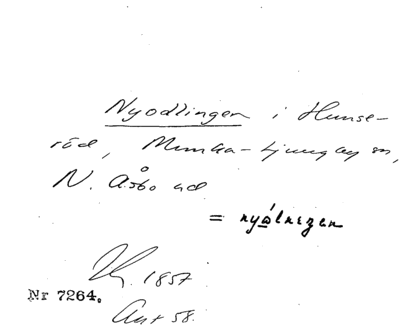 Nyodlingen i Hunse-
röd, Munka-Ljungby sn,
N. Åsbo hd
= nyǻlnezen
1857.
Nr 7264.
58.